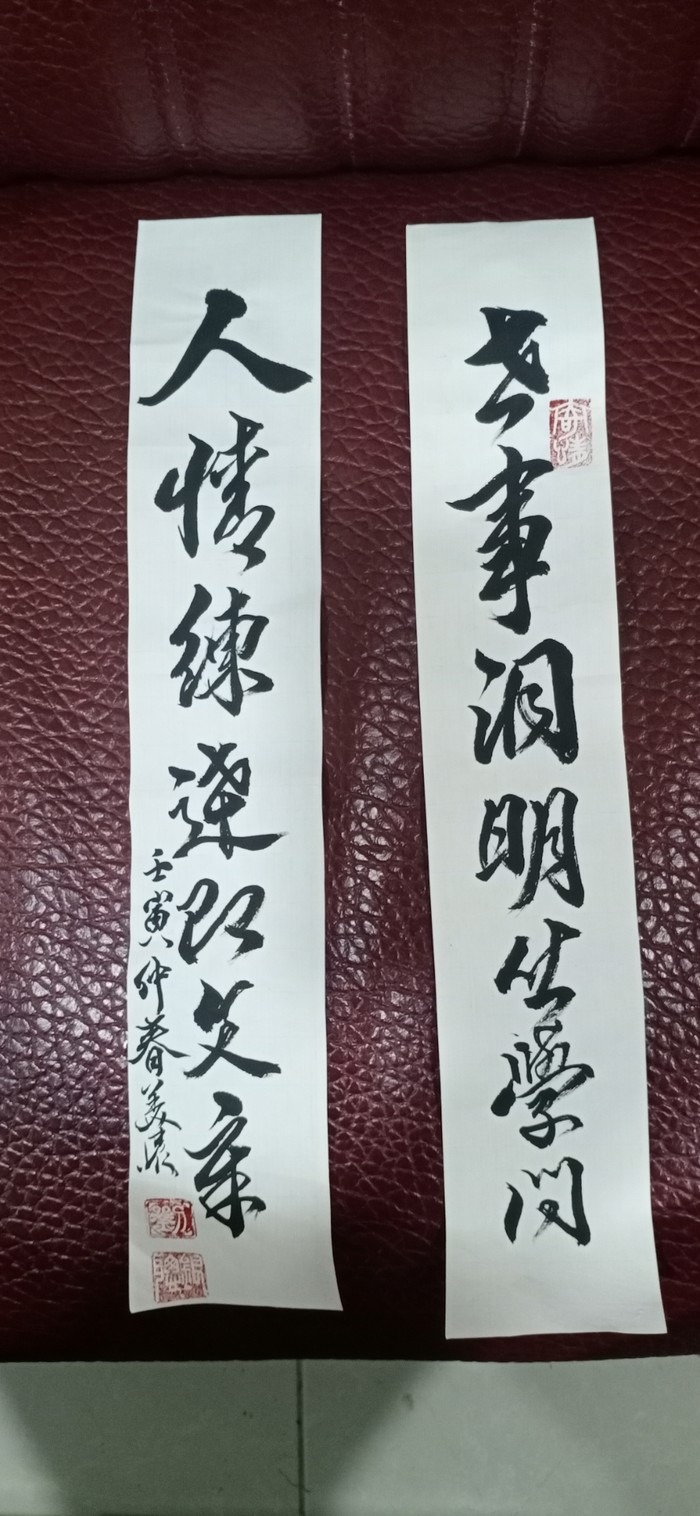 世事洞明皆學問
人情練達即文章
壬寅仲春